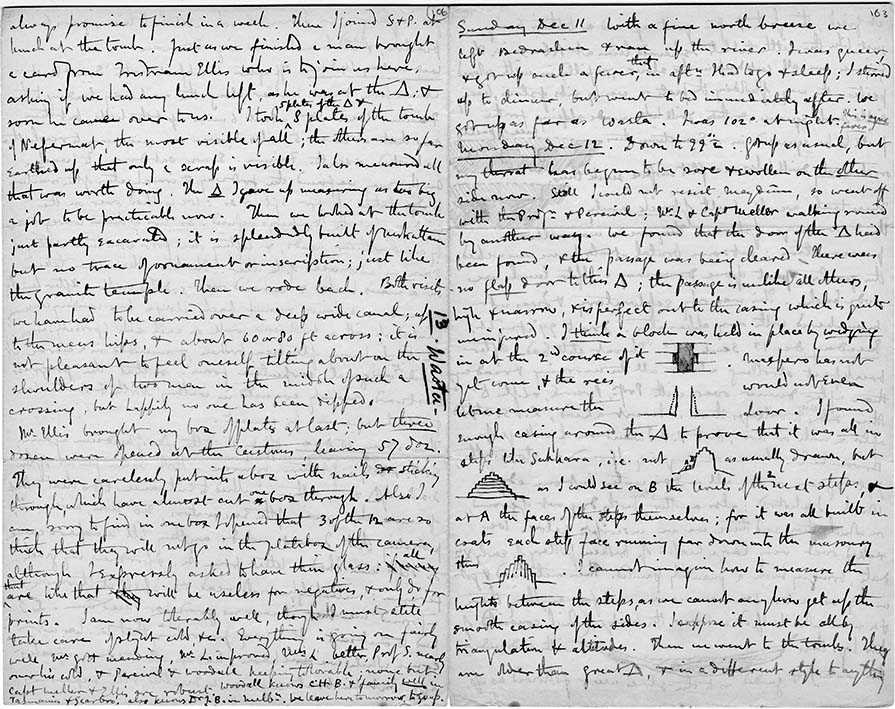 106
always promise to finish in a week. Then I joined S & P. at
lunch at the tomb. Just as we finished a man brought
a card from Tristram Ellis who is to join us here,
asking if we had any lunch left, as he was at the Δ; &
soon he came over to us. I took 8 plates of the tomb
splates of the Δ &
of Nefermat, the most visible of all; the others are so far
earthed up that only a scrap is visible. I also measured all
that was worth doing. The Δ I gave up measuring as too big
a job to be practicable now. Then we looked at the tomb
just partly excavated; it is splendidly built of
but no trace of ornament or inscription; just like
the granite temple. Then we rode back. Both visits
we have had to be carried over a deep wide canal, up
to the mens hips, & about 60 or 80 ft across; it is
not pleasant to feel oneself tilting about on the
shoulders of two men in the middle of such a
crossing, but happily no one has been dipped.
Mr Ellis brought my box of plates at last; but three
dozen were opened at the customs, leaving 57 doz.
They were carelessly put into a box with nails sticking
through, which have almost cut one box through. Also I
am sorry to find in one box I opened that 3 of the 12 are so
thick that they will not go in the platebox of the camera,
although I expressly asked to have thin glass. if all
that are like that will be useless for negatives, & only do for
prints. I am now tolerably well, though I must
take care of slight cold &c. Everything is going on fairly
well, Mr. mending, Mr. L. improved, Mrs L better Prof S. nearly
over his cold, & Percival & Woodall keeping tolerable; none but
Capt Meller & Ellis are robust. Woodall knows & family well in
Tasmania & Scarboro, also knows Dr J.B. in Melb. We leave here tomorrow to go up.
13 - Wasta.
107
Sunday Dec 11 With a fine north breeze we
left Bedrashen & ran up the river. I was queer,
& got up such a fever, that in aftn I had to go & sleep; I stirred
up to dinner, but went to bed immediately after. We
got up as far as Wasta. I was 102° at night.
this is ague fever
Monday Dec 12. Down to 99°2. Got up as usual, but
my throat has begun to be sore & swollen on the other
side now. Still I could not resist Maydum, so went off
with the Profr. & Percival; Mr. L & Capt Meller walking round
by another way. We found that the door of the Δ had
been found, & the passage was being cleared. There was
no flap door to this Δ; the passage is unlike all others,
high & narrow, & is perfect out to the casing which is quite
uninjured. I think a block was held in place by wedging
in at the 2nd course of it. Maspero has not
yet come, & the reis would not even
let me measure the door. I found
enough casing around the Δ to prove that it was all in
steps like Sakkara, i.e. not as usually drawn, but
as I could see on B the levels of the 2 next steps, &
at A the faces of the steps themselves; for it was all built in
coats each step face running far down into the masonry
thus . I cannot imagine how to measure the
heights between the steps, as we cannot anyhow get up the
smooth casing of the sides. I suppose it must be all by
triangulation & altitudes. Then we went to the tombs. They
are older than great Δ, & in a different style to anything